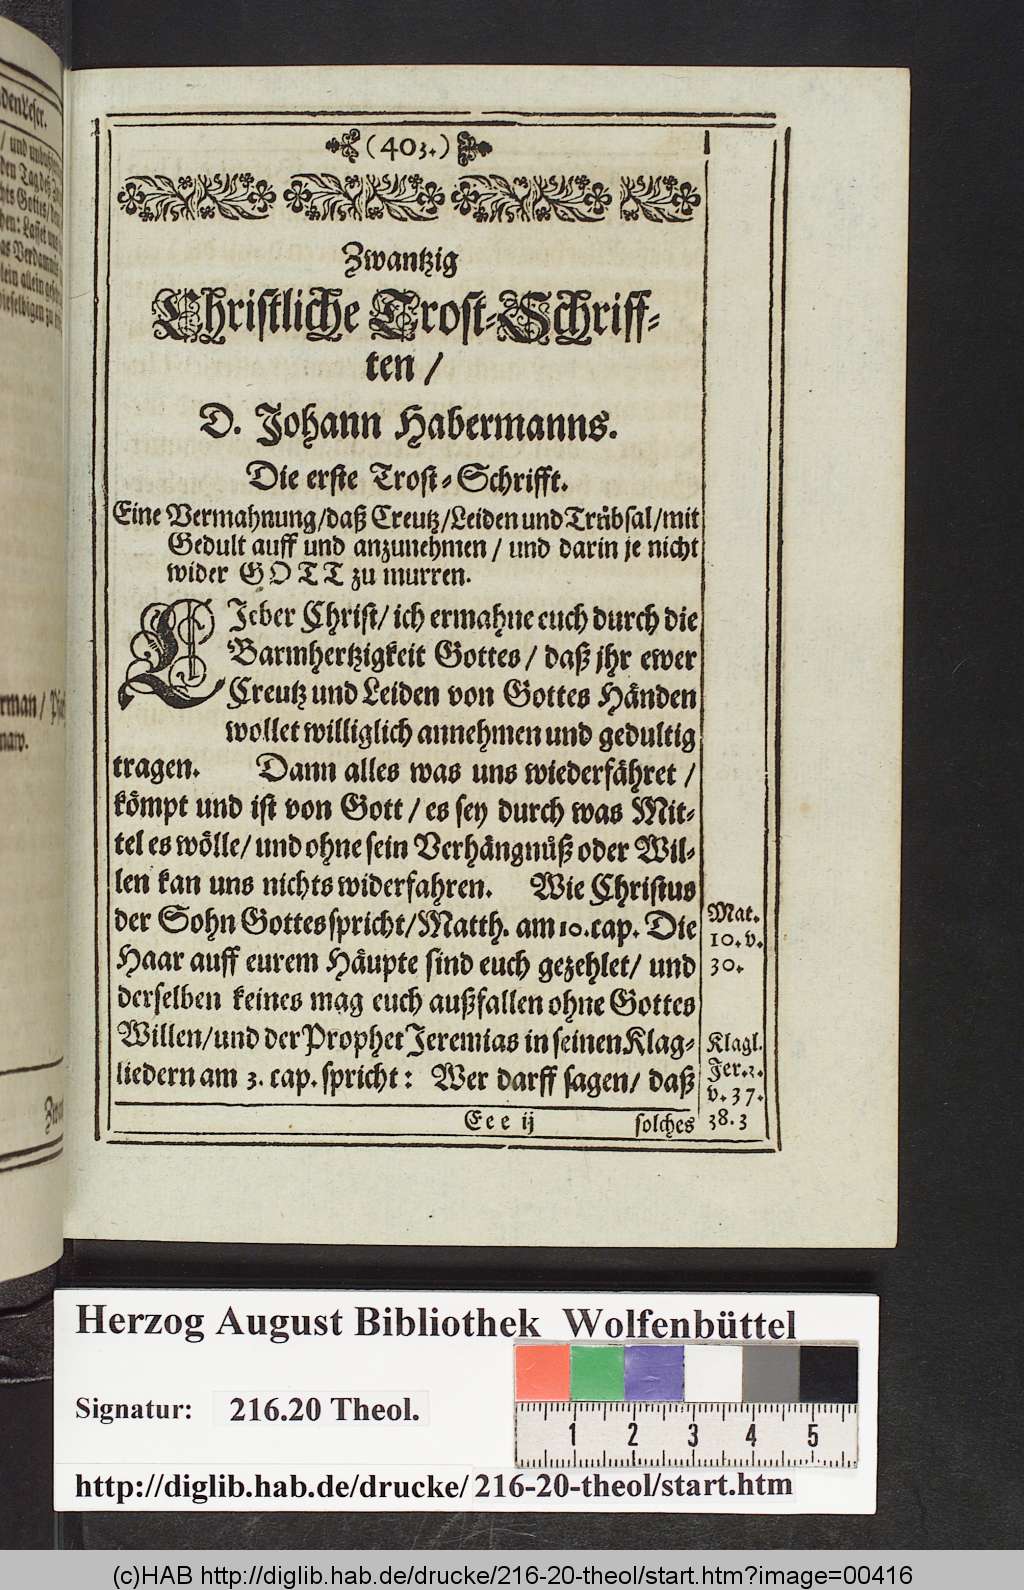 den Leser.
(403.)
Zwantzig
Christliche Trost-Schriff-
ten /
D. Johann Habermanns.
Die erste Trost-Schrifft.
Eine Vermahnung/daß Creutz/Leiden und Trübsal/mit
Gedult auff und anzunehmen / und darin je nicht
wider GOTT zu murren.
LJeber Christ/ ich ermahne euch durch die
Barmhertzigkeit Gottes / daß jhr ewer
Creutz und Leiden von Gottes Händen
wollet williglich annehmen und gedultig
tragen. Dann alles was uns wiederfähret /
kömpt und ist von Gott / es sey durch was Mit-
tel es wölle/ und ohne sein Verhängnüß oder Wil-
len kan uns nichts widerfahren. Wie Christus
der Sohn Gottes spricht/Matth. am 10.cap. Die
Haar auff eurem Häupte sind euch gezehlet/ und
derselben keines mag euch außfallen ohne Gottes
Willen/und der Prophet Jeremias in seinen Klag-
liedern am 3. cap. spricht: Wer darff sagen/ daß
Eee ij
solches
Mat.
10. v.
30.
Klagl.
Jer.2.
v. 37.
38.3
Herzog August Bibliothek Wolfenbüttel
Signatur: 216.20 Theol.
1 2 3 4 5
http://diglib.hab.de/drucke/216-20-theol/start.htm
(c)HAB http://diglib.hab.de/drucke/216-20-theol/start.htm?image=00416